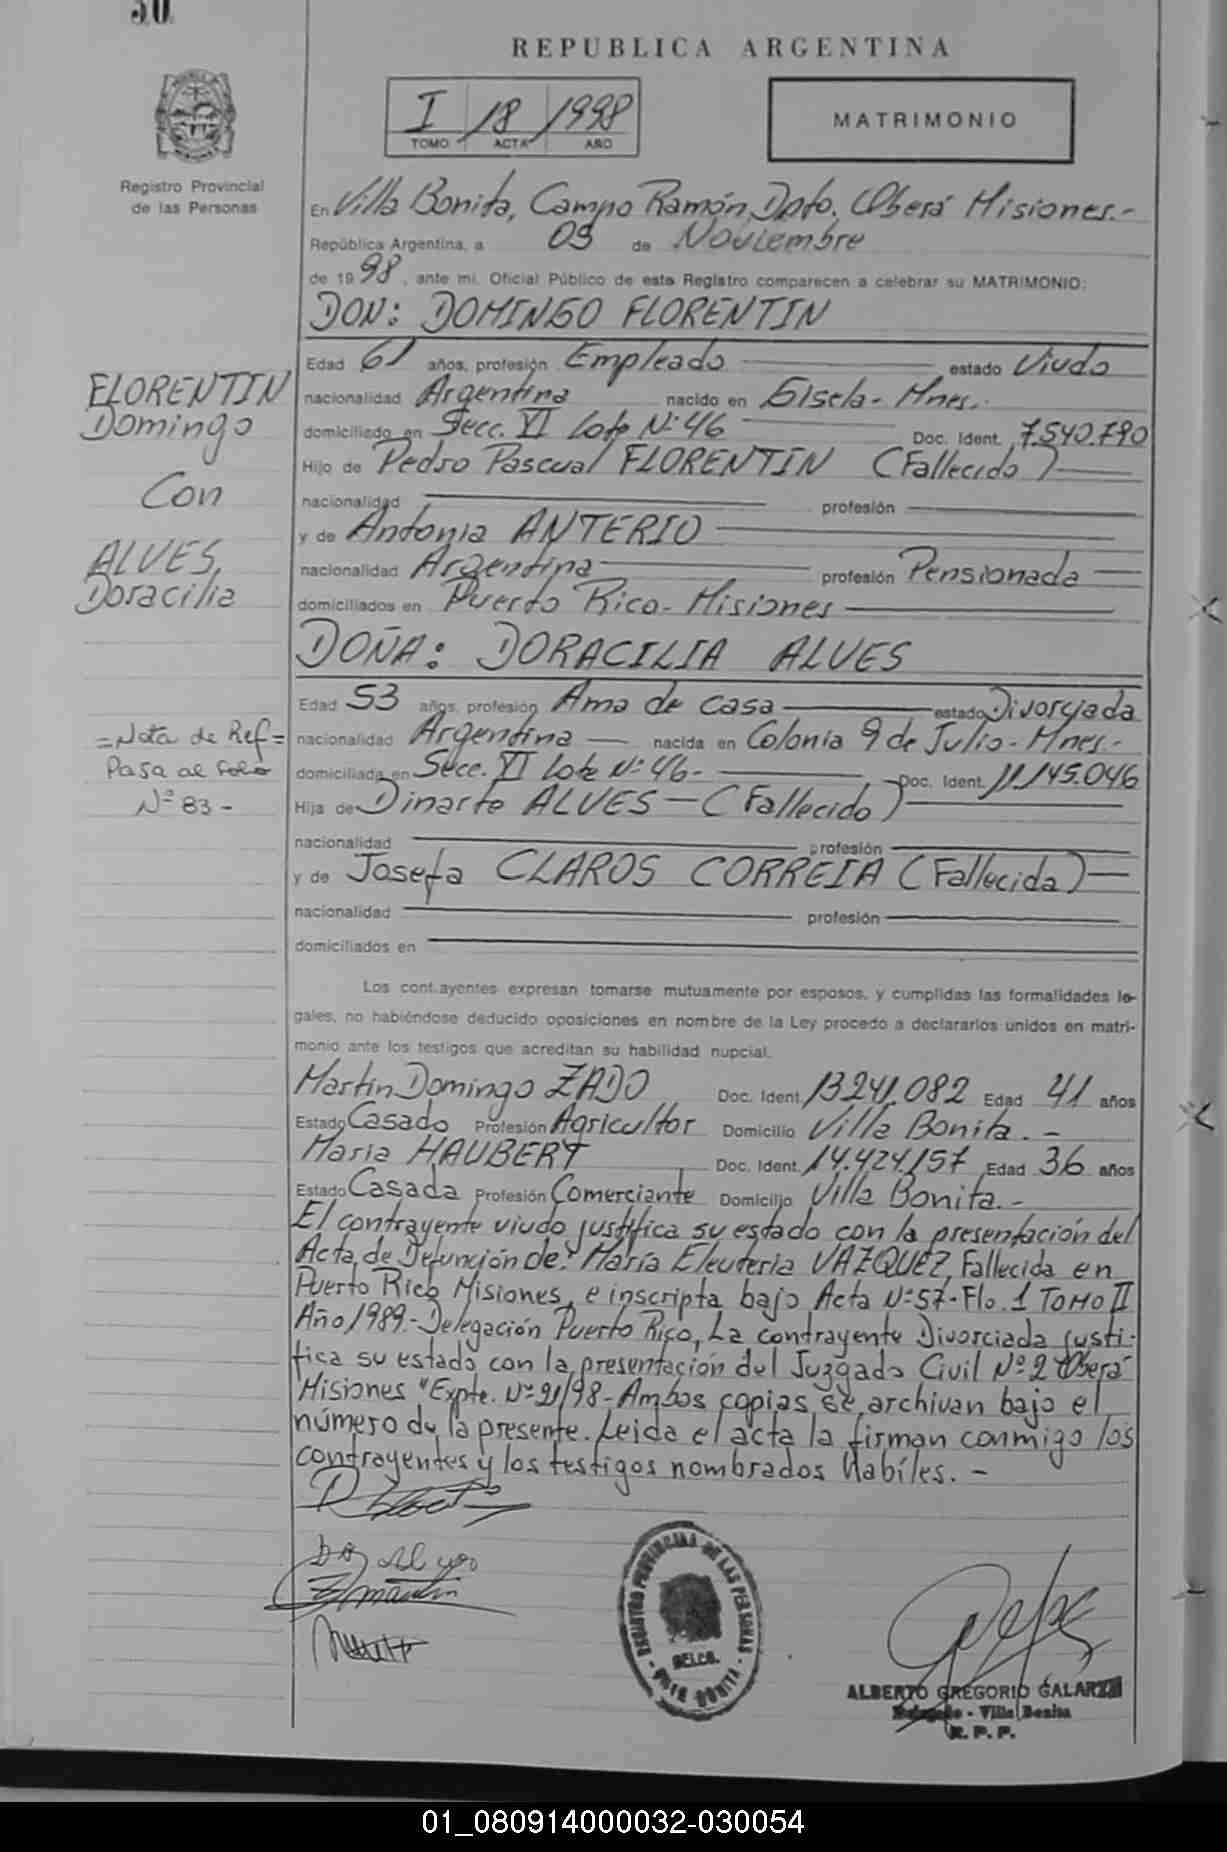 50
REPUBLICA ARGENTINA
I / 18 / 1998
TOMO ACTA AÑO
MATRIMONIO
Registro Provincial
de las Personas
En Villa Bonita, Campo Ramón, Dpto. Oberá Misiones.-
República Argentina, a 09 de Noviembre
de 1998, ante mi, Oficial Público de este Registro comparecen a celebrar su MATRIMONIO:
DON: DOMINGO FLORENTIN
Edad 61 años, profesión Empleado estado Viudo
nacionalidad Argentina nacido en Gisela - Mnes.
domiciliado en Secc. VI Lote Nº 46 Doc. Ident. 7.540.790
Hijo de Pedro Pascual FLORENTIN (Fallecido)
nacionalidad profesión
y de Antonia ANTERIO
nacionalidad Argentina profesión Pensionada
domiciliados en Puerto Rico - Misiones
FLORENTIN
Domingo
Con
ALVES,
Doracilia
DOÑA: DORACILIA ALVES
Edad 53 años, profesión Ama de casa estado Divorciada
nacionalidad Argentina nacida en Colonia 9 de Julio - Mnes.-
domiciliada en Secc. VI Lote Nº 46- Doc. Ident. 11.145.046
Hija de Dinarte ALVES - (Fallecido)
nacionalidad profesión
y de Josefa CLAROS CORREIA (Fallecida)
nacionalidad profesión
domiciliados en
=Nota de Ref=
Pasa al folio
Nº 83-
Los contrayentes expresan tomarse mutuamente por esposos, y cumplidas las formalidades le-
gales, no habiéndose deducido oposiciones en nombre de la Ley procedo a declararlos unidos en matri-
monio ante los testigos que acreditan su habilidad nupcial.
Martin Domingo ZADO Doc. Ident. 13241.082 Edad 41 años
Estado Casado Profesión Agricultor Domicilio Villa Bonita.-
Maria HAUBERT Doc. Ident. 14.424.157 Edad 36 años
Estado Casada Profesión Comerciante Domicilio Villa Bonita.-
El contrayente viudo justifica su estado con la presentación del
Acta de Defunción de: María Eleuteria VAZQUEZ, Fallecida en
Puerto Rico Misiones, e inscripta bajo Acta Nº 57-Flo. 1 TOMO II
Año 1989.- Delegación Puerto Rico, La contrayente Divorciada justi-
fica su estado con la presentación del Juzgado Civil Nº 2 Oberá
Misiones "Expte. Nº 21/98 - Ambos copias se archivan bajo el
número de la presente. Leida el acta la firman conmigo los
contrayentes y los testigos nombrados Habíles.-
REGISTRO PROVINCIAL DE LAS PERSONAS
DELEG.
VILLA BONITA
ALBERTO GREGORIO GALARZA
Delegado - Villa Bonita
R. P. P.
01_080914000032-030054